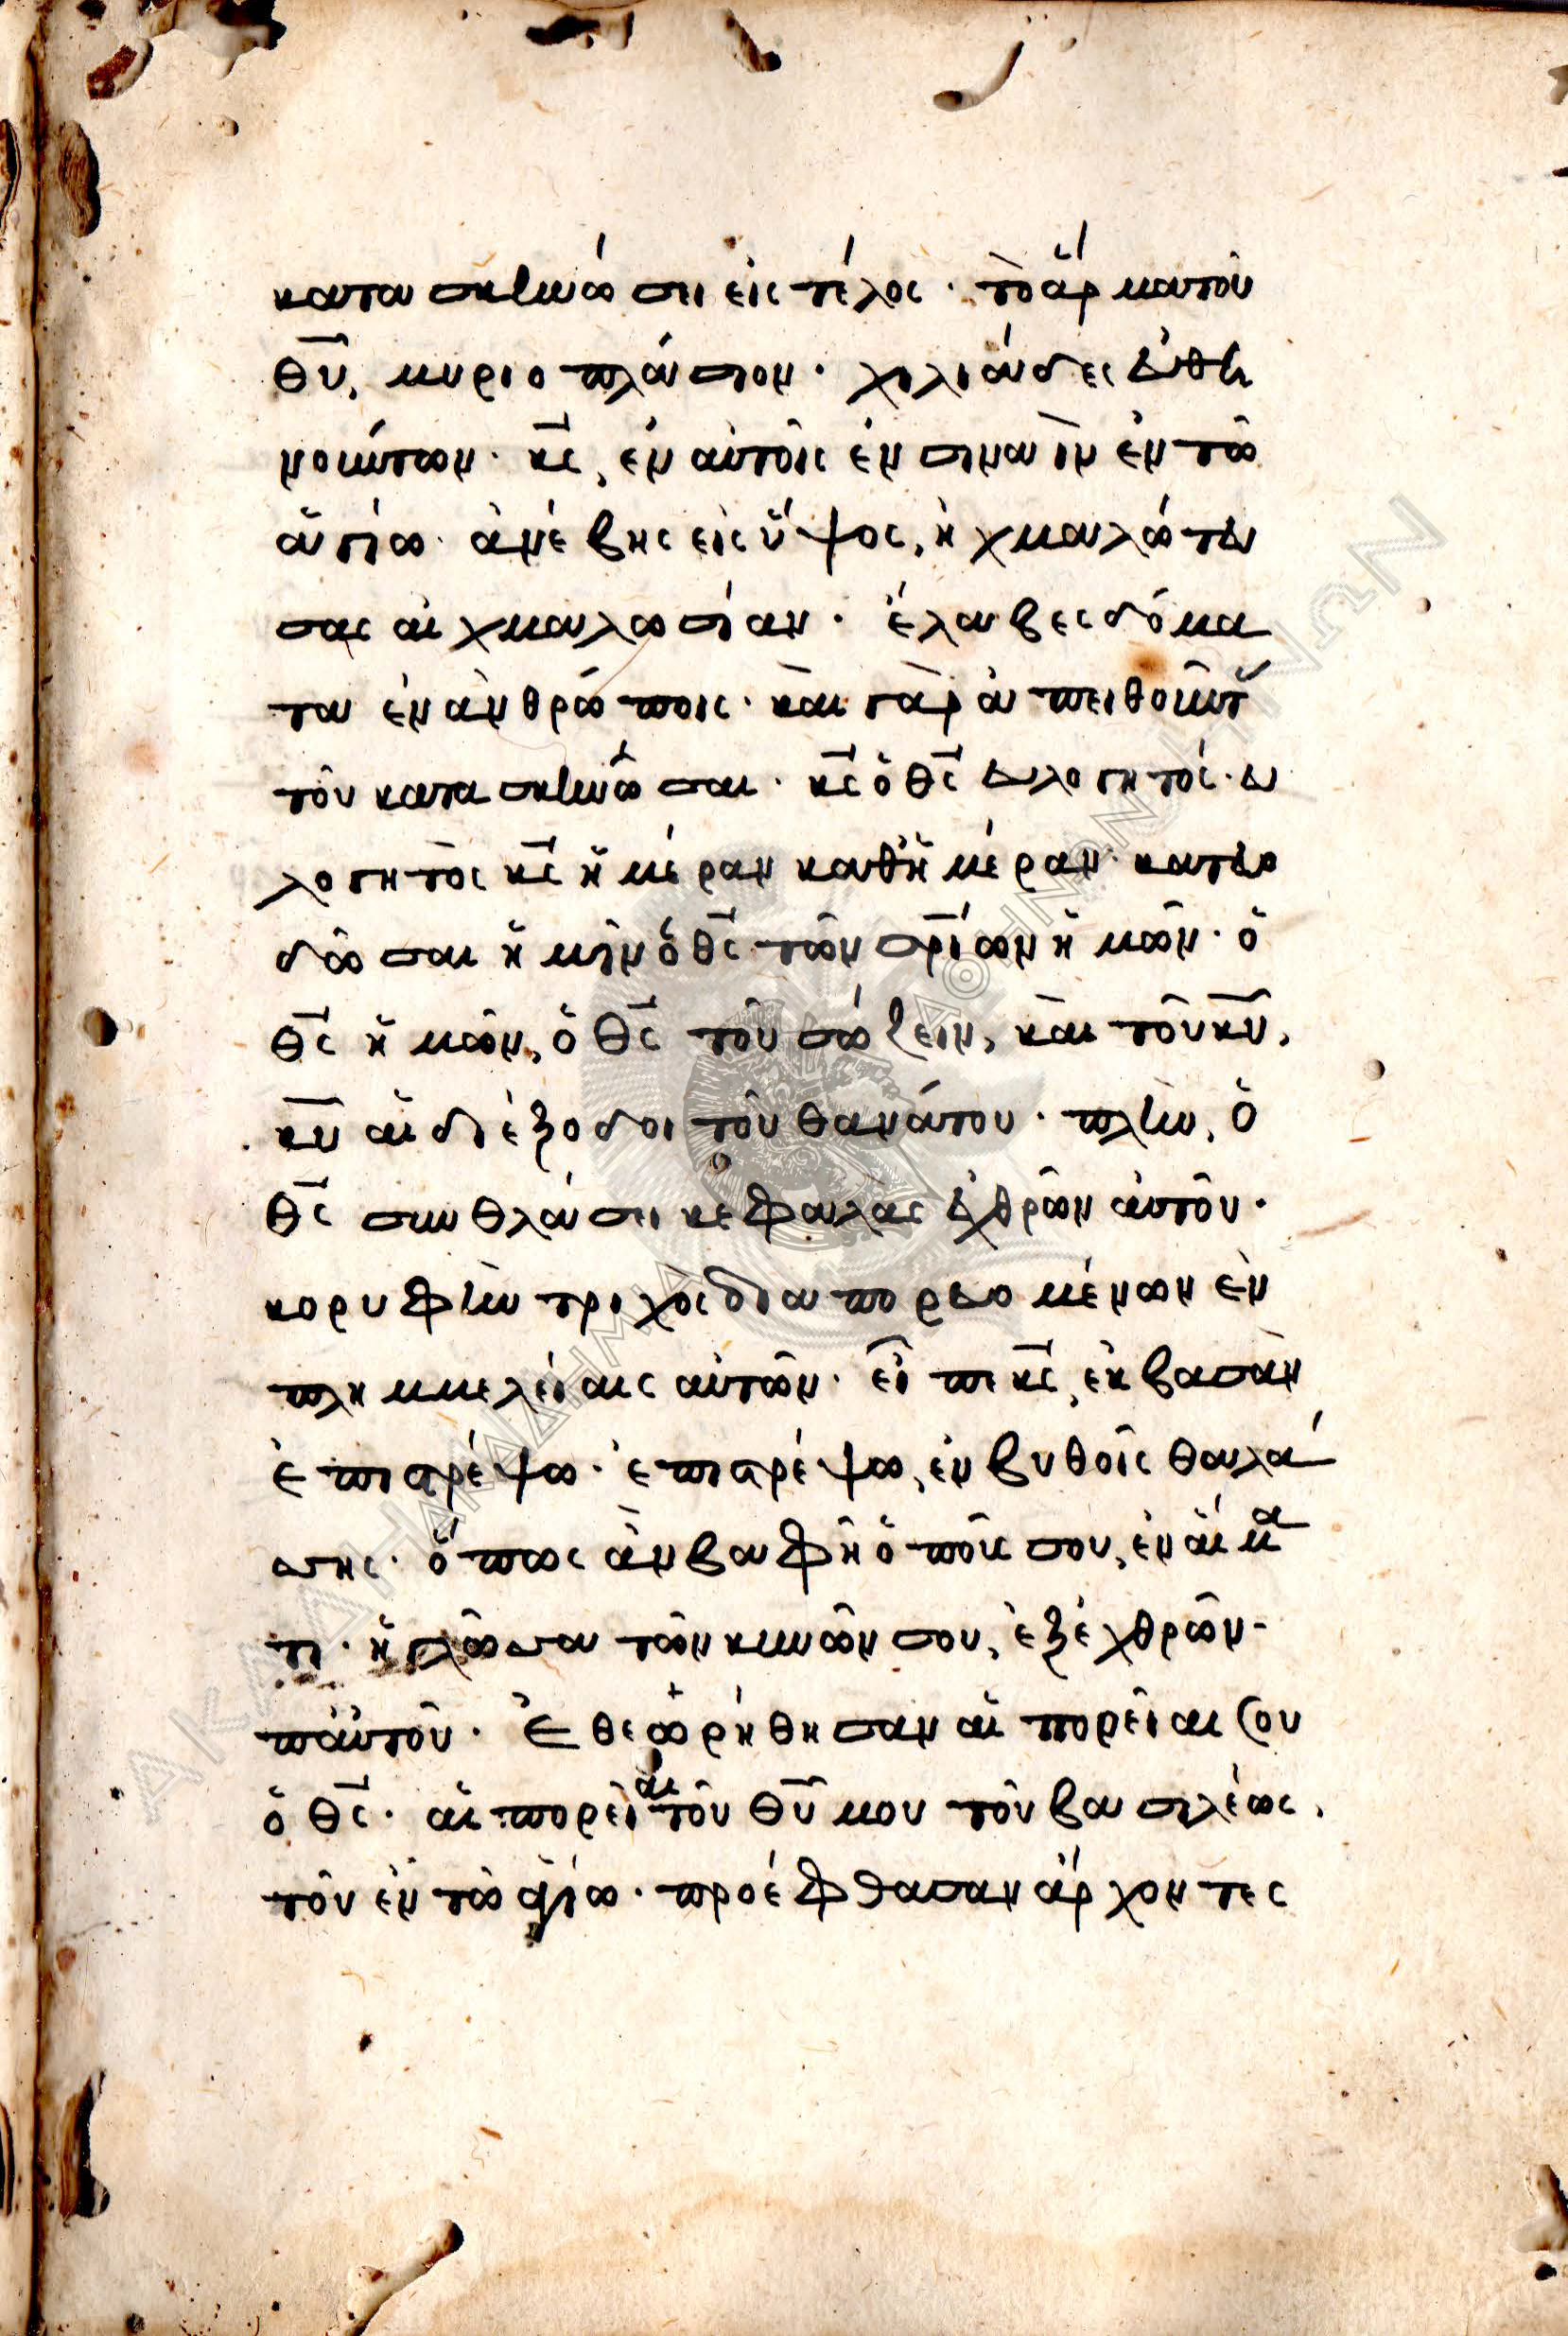 κατασκηνώσει εἰς τέλος· τὸ ἅρμα τοῦ
θῦ, μυριοπλάσιον· χιλιάδες εὐθη
νούντων· κς, ἐν αὐτοῖς ἐν σιναῒν ἐν τῶ
ἁγίω· ἀνέβης εἰς ὕψος, ἠχμαλώτευ
σας αἰχμαλωσίαν· ἔλαβες δόμα
τα ἐν ἀνθρώποις· καὶ γὰρ ἀπειθοῦντ
τοῦ κατασκηνῶσαι· κς ὁ θς εὐλογητός· εὐ
λογητὸς κς ἡμέραν καθἡμέραν· κατευο
δῶσαι ἡμῖν ὁ θς τῶν σρίων ἡμῶν· ὁ
θς ἡμῶν, ὁ θς τοῦ σώζειν, καὶ τοῦ κῦ,
κῦ αἱ διέξοδοι τοῦ θανάτου· πλὴν, ὁ
θς συνθλάσει κεφαλὰς ἐχθρῶν αὐτοῦ·
κορυφὴν τριχὸς διαπορευομένων ἐν
πλημμελείαις αὐτῶν· εἶπε κς, ἐκ βασὰν
ἐπιστρέψω· ἐπιστρέψω, ἐν βυθοῖς θαλά
σσης· ὅπως ἂν βαφῆ ὁ ποῦς σου, ἐν αἵμα
τι· ἡ γλῶσσα τῶν κυνῶν σου, ἐξ ἐχθρῶν
παὐτοῦ· Ἐθεωρήθησαν αἱ πορεῖαι σου
ὁ θς· αἱ πορεῖαι τοῦ θῦ μου τοῦ βασιλέως,
τοῦ ἐν τῶ ἁγίω· προέφθασαν ἄρχοντες
ΑΚΑΔΗΜΙΑ ΑΘΗΝΩΝ